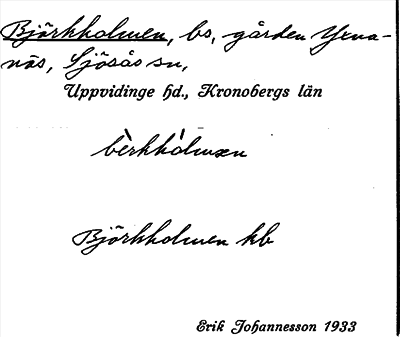 Björkholmen, bs, gården Yxna-
näs, Sjösås sn,
Uppvidinge hd., Kronobergs län
bèrkhòlmæn
Björkholmen kb
Erik Johannesson 1933